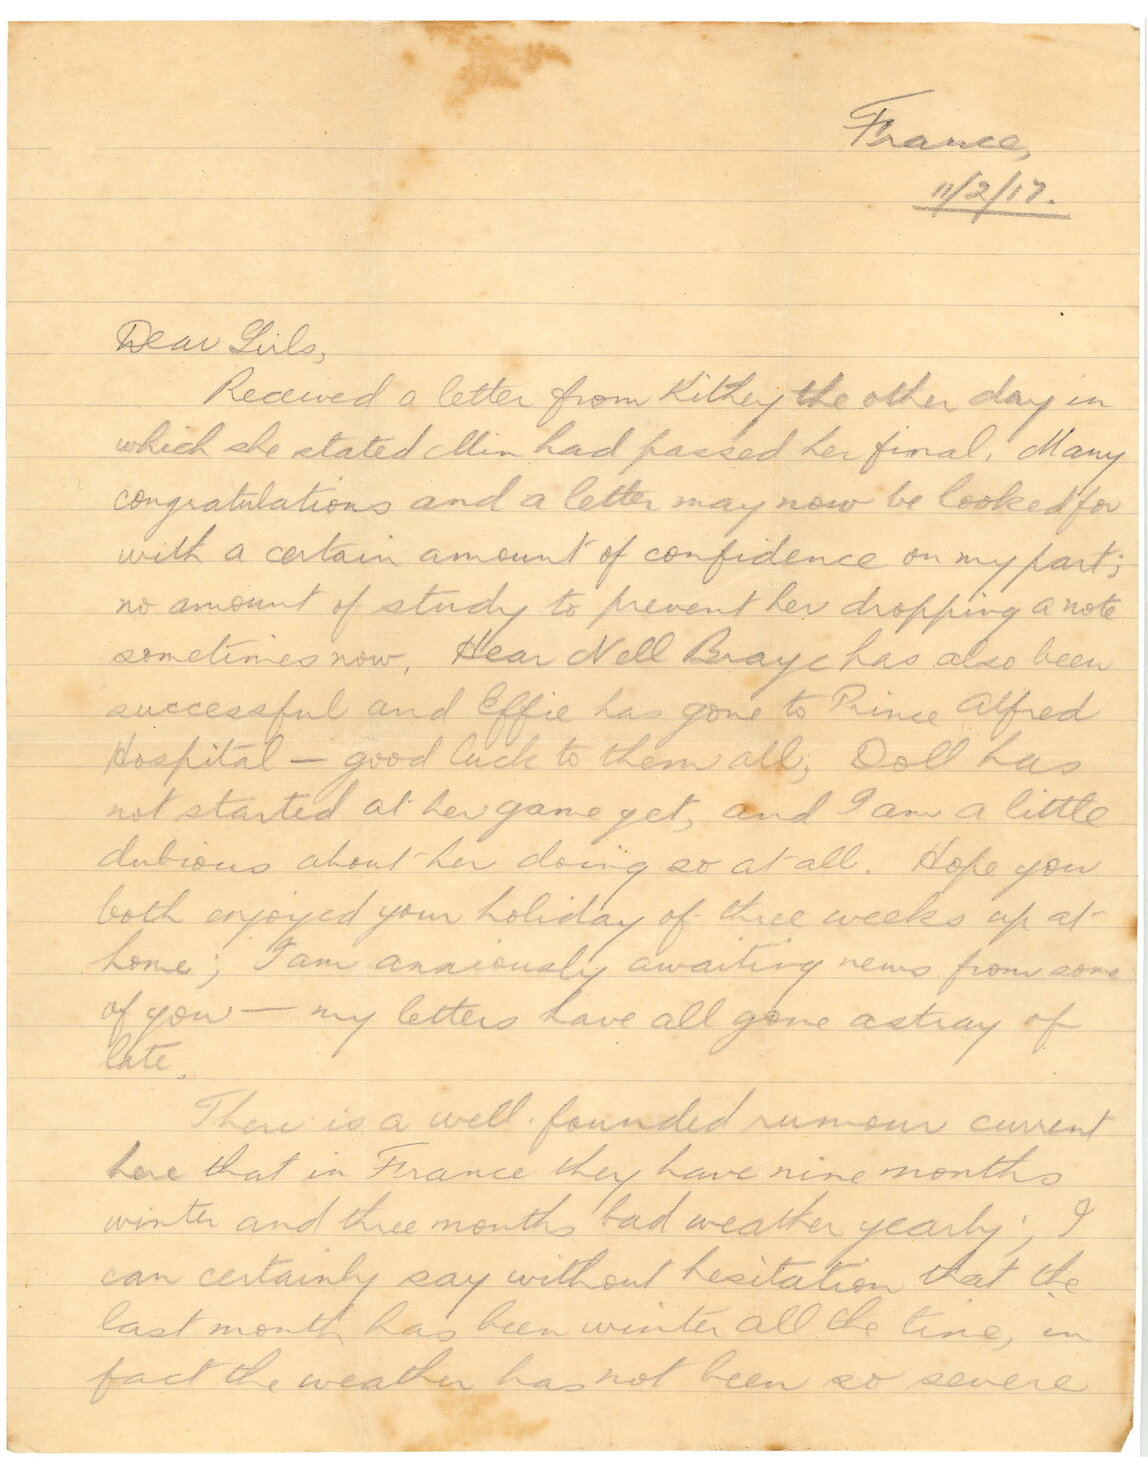 France,
11/2/17.
Dear Girls,
Received a letter from Kithey the other day in
which she stated Min had passed her final. Many
congratulations and a letter may now be looked for
with a certain amount of confidence on my part;
no amount of study to prevent her dropping a note
sometimes now. Hear Nell Braye has also been
successful and Effie has gone to Prince Alfred
Hospital — good luck to them all; Doll has
not started at her game yet, and I am a little
dubious about her doing so at all. Hope you
both enjoyed your holiday of three weeks up at
home; I am anxiously awaiting news from some
of you — my letters have all gone astray of
late.
There is a well founded rumour current
here that in France they have nine months
winter and three months bad weather yearly; I
can certainly say without hesitation that the
last month has been winter all the time, in
fact the weather has not been so severe